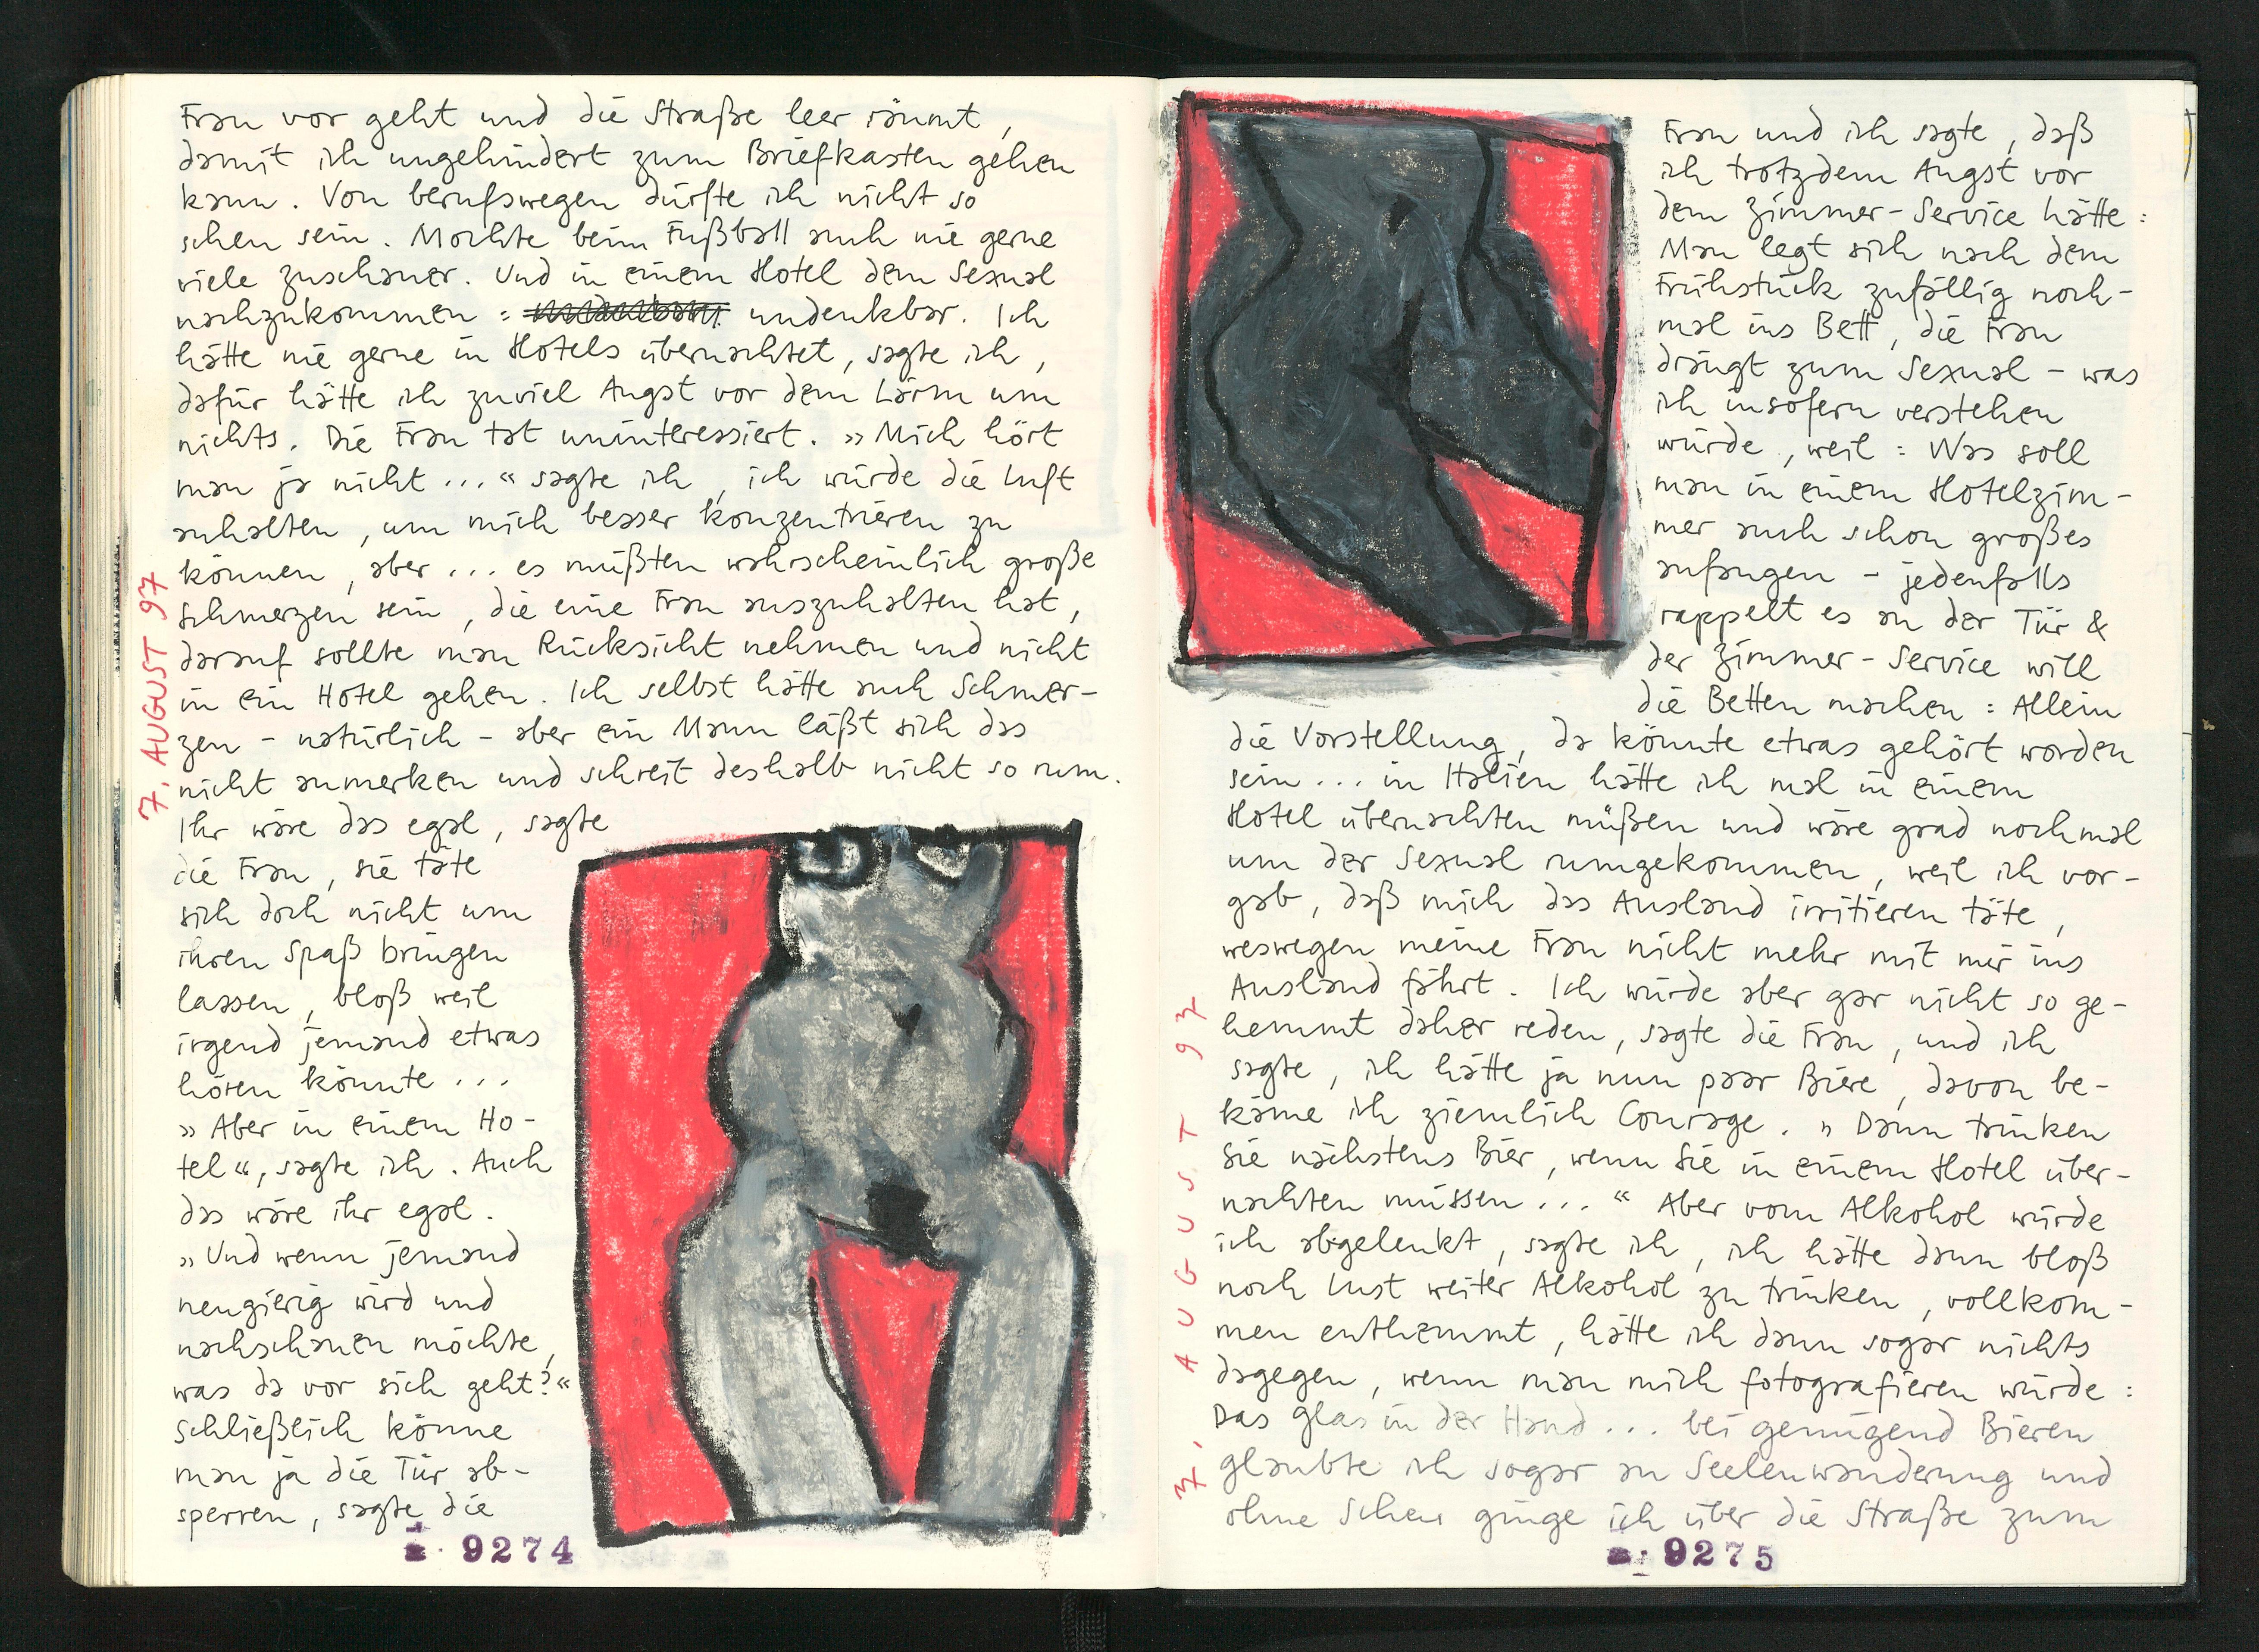 Frau vor geht und die Straße leer räumt,
damit ich ungehindert zum Briefkasten gehen
kann. Von berufswegen dürfte ich nicht so
scheu sein. Mochte beim Fußball auch nie gerne
viele Zuschauer. Und in einem Hotel dem Sexual
nachzukommen = undenkbar. Ich
hätte nie gerne in Hotels übernachtet, sagte ich,
dafür hätte ich zuviel Angst vor dem Lärm um
nichts. Die Frau tat uninteressiert. »Mich hört
man ja nicht ...« sagte ich, ich würde die Luft
anhalten, um mich besser konzentrieren zu
können, aber ... es müßten wahrscheinlich große
Schmerzen sein, die eine Frau auszuhalten hat,
darauf sollte man Rücksicht nehmen und nicht
in ein Hotel gehen. Ich selbst hätte auch Schmer-
zen – natürlich – aber ein Mann läßt sich das
nicht anmerken und schreit deshalb nicht so rum.
Ihr wäre das egal, sagte
die Frau, sie täte
sich doch nicht um
ihren Spaß bringen
lassen, bloß weil
irgend jemand etwas
hören könnte ...
»Aber in einem Ho-
tel«, sagte ich. Auch
das wäre ihr egal.
»Und wenn jemand
neugierig wird und
nachschauen möchte,
was da vor sich geht?«
Schließlich könne
man ja die Tür ab-
sperren, sagte die
7. AUGUST 97
9274
Frau und ich sagte, daß
ich trotzdem Angst vor
dem Zimmer-Service hätte:
Man legt sich nach dem
Frühstück zufällig noch-
mal ins Bett, die Frau
drängt zum Sexual – was
ich insofern verstehen
würde, weil: Was soll
man in einem Hotelzim-
mer auch schon großes
anfangen – jedenfalls
rappelt es an der Tür &
der Zimmer-Service will
die Betten machen: Allein
die Vorstellung, da könnte etwas gehört worden
sein ... in Italien hätte ich mal in einem
Hotel übernachten müßen und wäre grad nochmal
um der Sexual rumgekommen, weil ich vor-
gab, daß mich das Ausland irritieren täte,
weswegen meine Frau nicht mehr mit mir ins
Ausland fährt. Ich würde aber gar nicht so ge-
hemmt daher reden, sagte die Frau, und ich
sagte, ich hätte ja nun paar Biere, davon be-
käme ich ziemlich Courage. »Dann trinken
Sie nächstens Bier, wenn Sie in einem Hotel über-
nachten müssen ...« Aber vom Alkohol würde
ich abgelenkt, sagte ich, ich hätte dann bloß
noch Lust weiter Alkohol zu trinken, vollkom-
men enthemmt, hätte ich dann sogar nichts
dagegen, wenn man mich fotografieren würde:
Das Glas in der Hand ... bei genügend Bieren
glaubte ich sogar an Seelenwanderung und
ohne Scheu ginge ich über die Straße zum
7. AUGUST 97
9275